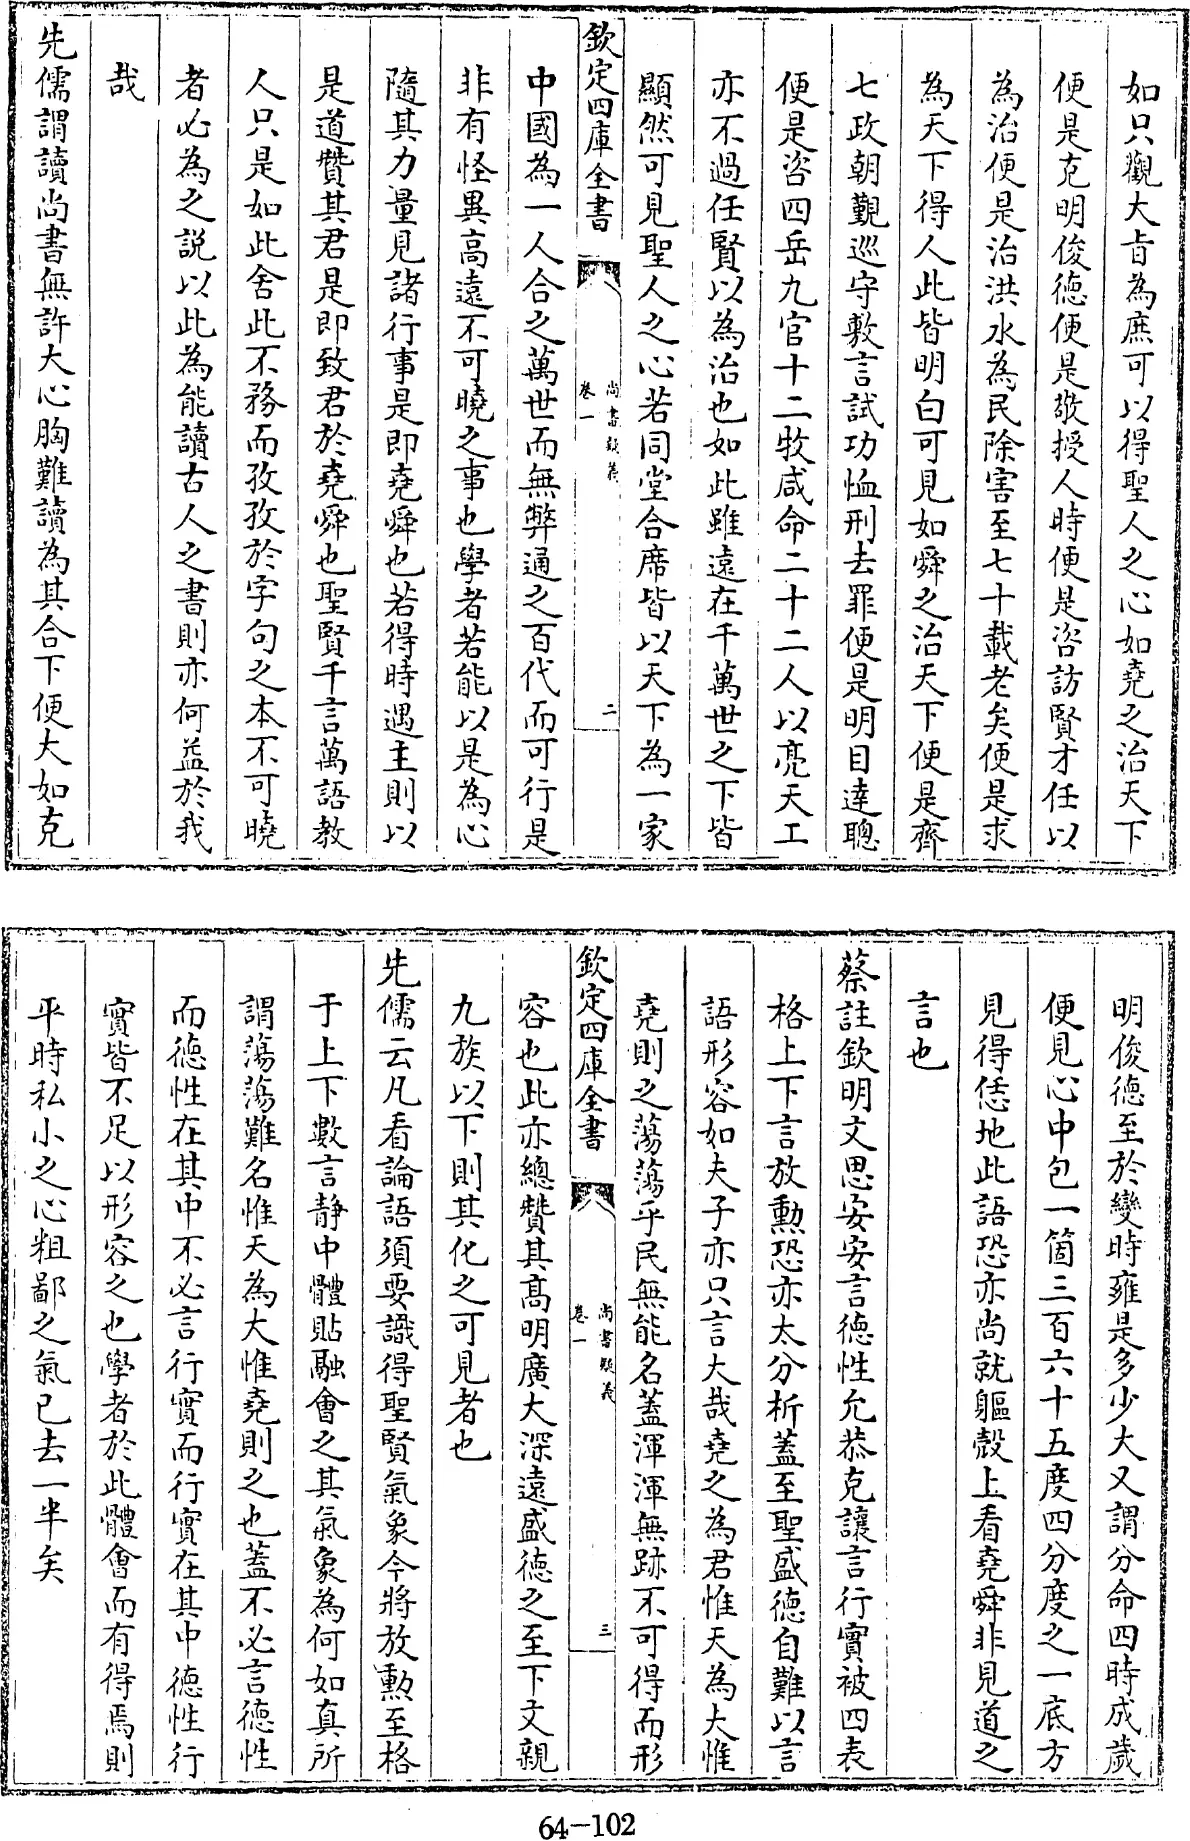 如只觀大㫖為庶可以得聖人之心如堯之治天下
便是克明俊德便是敬授人時便是咨訪賢才任以
為治便是治洪水為民除害至七十載老矣便是求
為天下得人此皆明白可見如舜之治天下便是齊
七政朝覲巡守敷言試功恤刑去罪便是明目達聰
便是咨四岳九官十二牧咸命二十二人以亮天工
亦不過任賢以為治也如此雖遠在千萬世之下皆
顯然可見聖人之心若同堂合席皆以天下為一家
欽定四庫全書
尚書疑義
卷一
二
中國為一人合之萬世而無弊通之百代而可行是
非有怪異高遠不可曉之事也學者若能以是為心
隨其力量見諸行事是即堯舜也若得時遇主則以
是道贊其君是即致君於堯舜也聖賢千言萬語教
人只是如此舍此不務而孜孜於字句之本不可曉
者必為之説以此為能讀古人之書則亦何益於我
哉
先儒謂讀尚書無許大心胸難讀為其合下便大如克
明俊德至於變時雍是多少大又謂分命四時成歲
便見心中包一箇三百六十五度四分度之一底方
見得恁地此語恐亦尚就軀殼上看堯舜非見道之
言也
蔡註欽明文思安安言德性允恭克讓言行實被四表
格上下言放勲恐亦太分析蓋至聖盛德自難以言
語形容如夫子亦只言大哉堯之為君惟天為大惟
堯則之蕩蕩乎民無能名蓋渾渾無跡不可得而形
欽定四庫全書
尚書疑義
卷一
三
容也此亦總贊其髙明廣大深遠盛德之至下文親
九族以下則其化之可見者也
先儒云凡看論語須要識得聖賢氣象今將放勲至格
于上下數言静中體貼融會之其氣象為何如真所
謂蕩蕩難名惟天為大惟堯則之也蓋不必言德性
而德性在其中不必言行實而行實在其中德性行
實皆不足以形容之也學者於此體會而有得焉則
平時私小之心粗鄙之氣已去一半矣
64-102